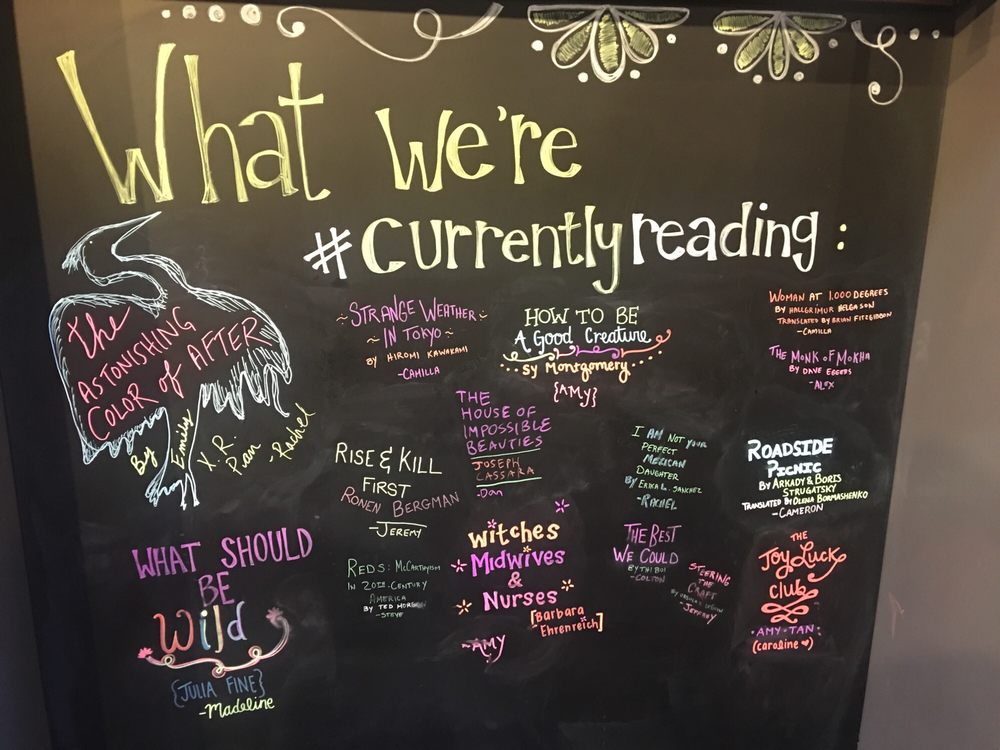 What we're
#currentlyreading:
the
ASTONISHING
COLOR of AFTER
By Emily
X. R.
Pan
-Rachel
STRANGE WEATHER
IN TOKYO
BY HIROMI KAWAKAMI
-CAMILLA
HOW TO BE
A Good Creature
Sy Montgomery
{AMY}
WOMAN AT 1,000 DEGREES
BY HALLGRIMUR HELGASON
TRANSLATED BY BRIAN FITZGIBBON
-CAMILLA
THE MONK OF MOKHA
BY DAVE EGGERS
-ALEX
THE
HOUSE OF
IMPOSSIBLE
BEAUTIES
JOSEPH
CASSARA
-Dan
RISE & KILL
FIRST
RONEN BERGMAN
-JEREMY
I AM NOT YOUR
PERFECT
MEXICAN
DAUGHTER
BY ERIKA L. SANCHEZ
-RACHEL
ROADSIDE
PICNIC
BY ARKADY & BORIS
STRUGATSKY
TRANSLATED BY OLENA BORMASHENKO
-CAMERON
WHAT SHOULD
BE
Wild
{JULIA FINE}
-Madeline
REDS: McCARTHYISM
IN 20TH-CENTURY
AMERICA
BY TED MORGAN
-STEVE
witches
Midwives
&
Nurses
[Barbara
Ehrenreich]
-AMY
THE BEST
WE COULD
BY THI BUI
-COLTON
STEERING
THE
CRAFT
BY URSULA K. LEGUIN
-JEFFREY
THE
Joy Luck
Club
AMY TAN
(caroline ♥)